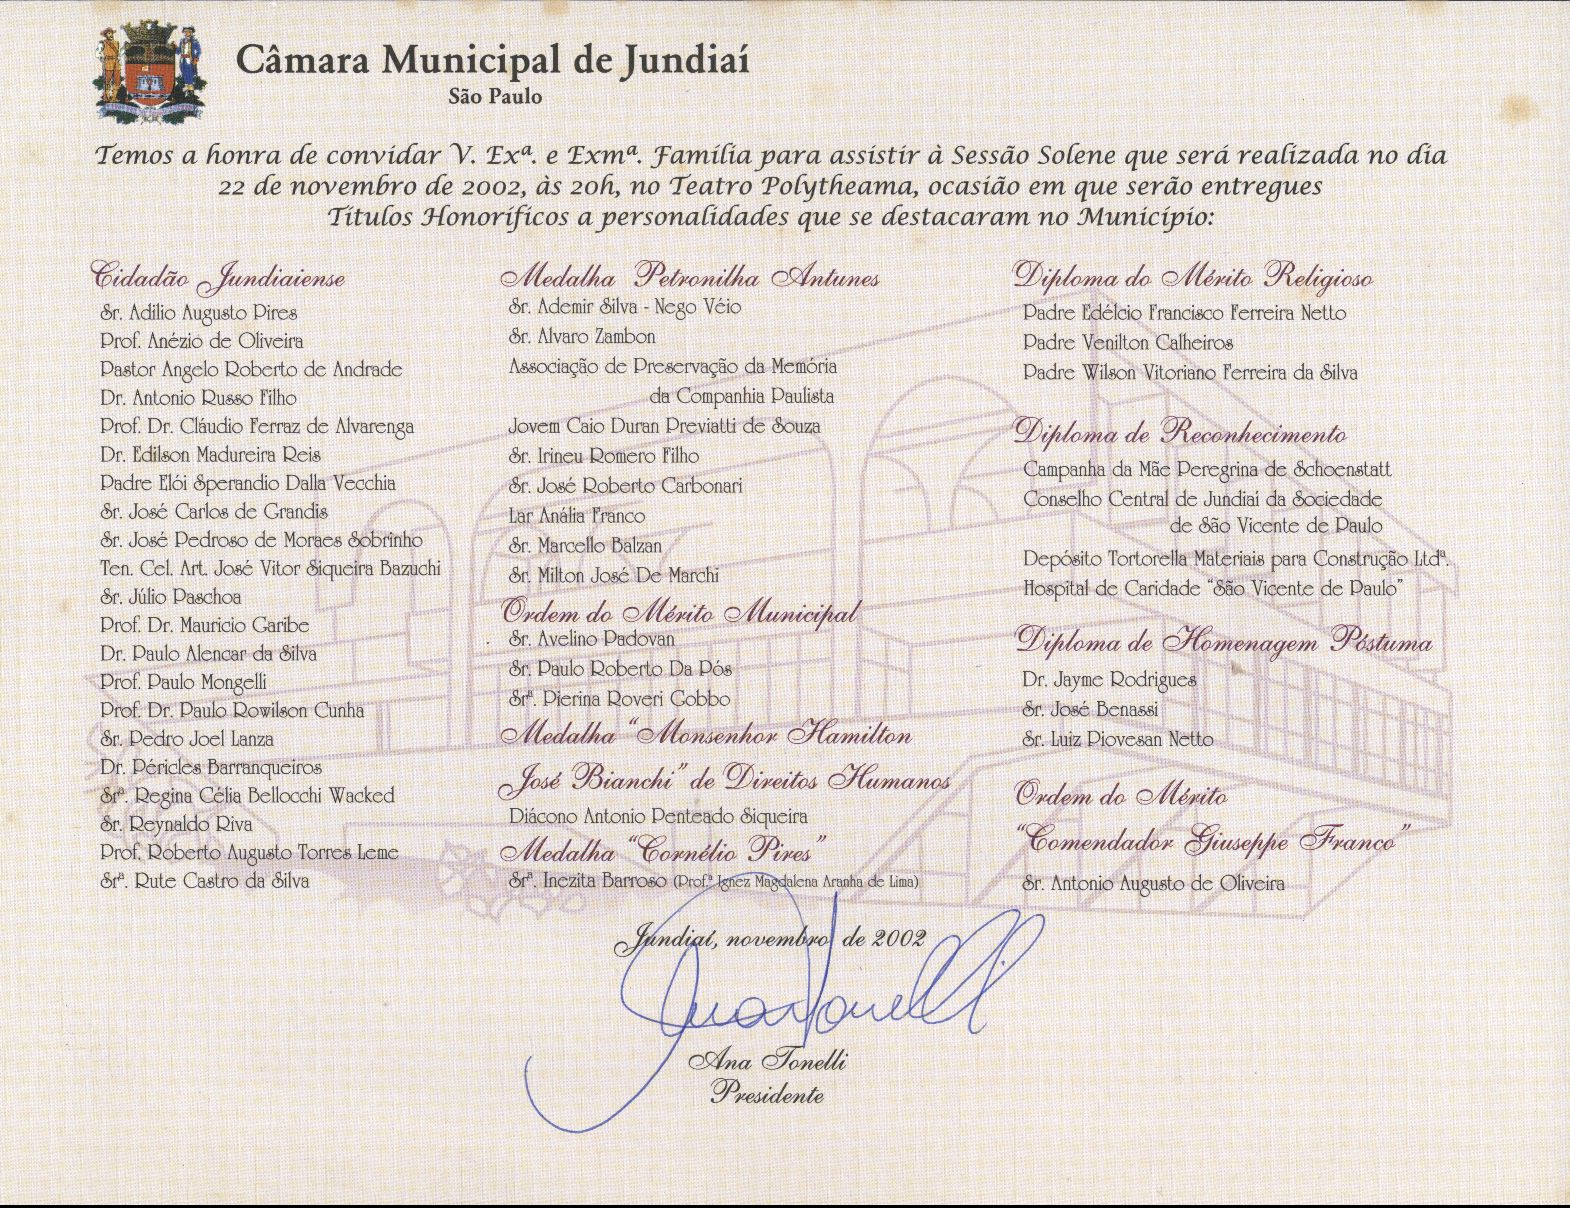 Câmara Municipal de Jundiaí
São Paulo
Temos a honra de convidar V. Exª. e Exmª. Família para assistir à Sessão Solene que será realizada no dia
22 de novembro de 2002, às 20h, no Teatro Polytheama, ocasião em que serão entregues
Títulos Honoríficos a personalidades que se destacaram no Município:
Cidadão Jundiaiense
Sr. Adílio Augusto Pires
Prof. Anézio de Oliveira
Pastor Angelo Roberto de Andrade
Dr. Antonio Russo Filho
Prof. Dr. Cláudio Ferraz de Alvarenga
Dr. Edilson Madureira Reis
Padre Elói Sperandio Dalla Vecchia
Sr. José Carlos de Grandis
Sr. José Pedroso de Moraes Sobrinho
Ten. Cel. Art. José Vitor Siqueira Bazuchi
Sr. Júlio Paschoa
Prof. Dr. Mauricio Garibe
Dr. Paulo Alencar da Silva
Prof. Paulo Mongelli
Prof. Dr. Paulo Rowilson Cunha
Sr. Pedro Joel Lanza
Dr. Péricles Barranqueiros
Srª. Regina Célia Bellocchi Wacked
Sr. Reynaldo Riva
Prof. Roberto Augusto Torres Leme
Srª. Rute Castro da Silva
Medalha Petronilha Antunes
Sr. Ademir Silva - Nego Véio
Sr. Alvaro Zambon
Associação de Preservação da Memória
da Companhia Paulista
Jovem Caio Duran Previatti de Souza
Sr. Irineu Romero Filho
Sr. José Roberto Carbonari
Lar Anália Franco
Sr. Marcello Balzan
Sr. Milton José De Marchi
Ordem do Mérito Municipal
Sr. Avelino Padovan
Sr. Paulo Roberto Da Pós
Srª. Pierina Roveri Gobbo
Medalha “Monsenhor Hamilton
José Bianchi” de Direitos Humanos
Diácono Antonio Penteado Siqueira
Medalha “Cornélio Pires”
Srª. Inezita Barroso (Prof.ª Ignez Magdalena Aranha de Lima)
Diploma do Mérito Religioso
Padre Edélcio Francisco Ferreira Netto
Padre Venilton Calheiros
Padre Wilson Vitoriano Ferreira da Silva
Diploma de Reconhecimento
Campanha da Mãe Peregrina de Schoenstatt
Conselho Central de Jundiaí da Sociedade
de São Vicente de Paulo
Depósito Tortorella Materiais para Construção Ltdª.
Hospital de Caridade “São Vicente de Paulo”
Diploma de Homenagem Póstuma
Dr. Jayme Rodrigues
Sr. José Benassi
Sr. Luiz Piovesan Netto
Ordem do Mérito
“Comendador Giuseppe Franco”
Sr. Antonio Augusto de Oliveira
Jundiaí, novembro de 2002
Ana Tonelli
Ana Tonelli
Presidente